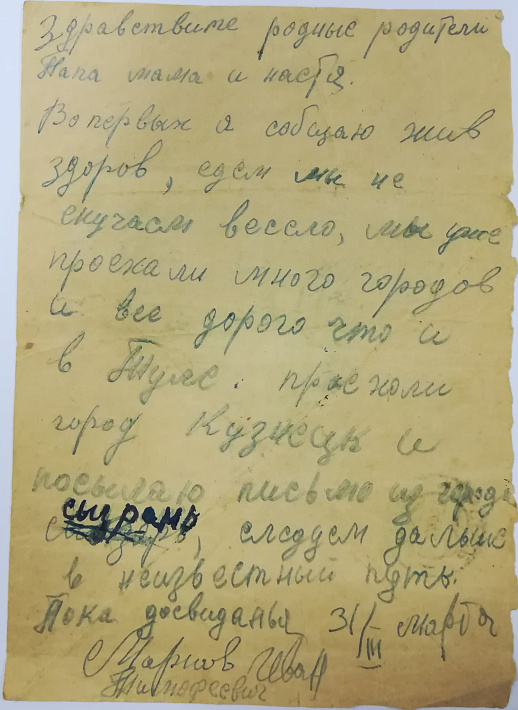 Здравствите родные родители
Папа мама и настя.
Вопервых я собщаю жив
здоров, едем мы не
скучаем вессло, мы уже
проехали много городов
и все дорого что и
в Туле. проехоли
город Кузнецк и
посылаю письмо из города
сызрань, следуем дальше
в неизвестный путь.
Пока досвиданья 31/III марта
Марков Иван
Тимофеевич